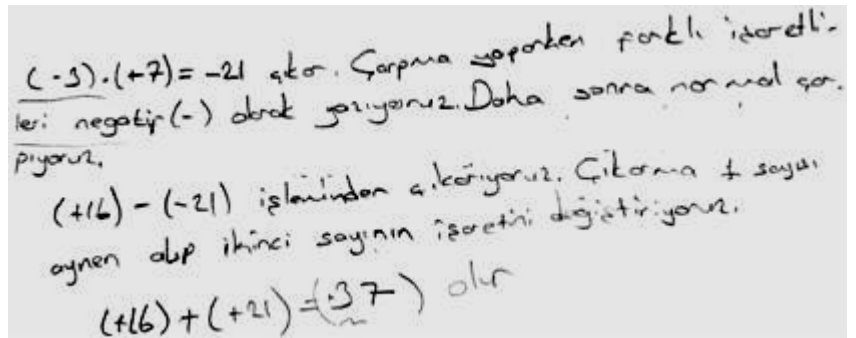 (-3).(+7)= -21 çıkar. Çarpma yaparken farklı işaretli-
leri negatif (-) olarak yazıyoruz. Daha sonra normal çar-
pıyoruz.
(+16) - (-21) işleminden çıkarıyoruz. Çıkarma 1. sayısı
aynen alıp ikinci sayının işaretini değiştiriyoruz.
(+16) + (+21) = (+37) olur